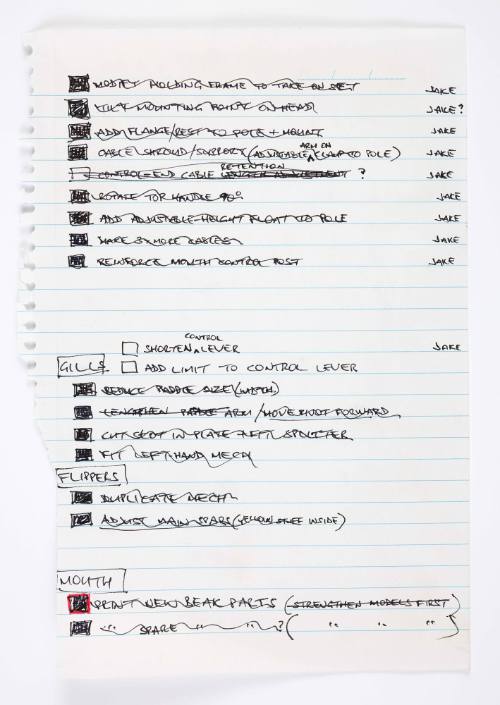 MODIFY HOLDING FRAME TO TAKE ON SET JAKE
MOUNTING POINT ON HEAD JAKE?
ADD FLANGE/REST TO POLE + MOUNT JAKE
CABLE SHROUD/SUPPORT (ADJUSTABLE ARM ON CLAMP TO POLE) JAKE
CONTROL-END CABLE RETENTION LENGTH ADJUSTMENT ?
ROTATE TOP HANDLE 90° JAKE
ADD ADJUSTABLE-HEIGHT FLOAT TO POLE JAKE
MAKE 3x MORE CABLES JAKE
REINFORCE MOUTH CONTROL POST JAKE
SHORTEN CONTROL LEVER JAKE
GILLS ADD LIMIT TO CONTROL LEVER
REDUCE PADDLE SIZE (WIDTH)
LENGTHEN PADDLE ARM / MOVE PIVOT FORWARD
CUT SLOT IN PLATE + FIT SPLITTER
FIT LEFT HAND MECH
FLIPPERS
DUPLICATE MECH
ADJUST MAIN SPARS (YELLOW STUFF INSIDE)
MOUTH
PRINT NEW BEAK PARTS (STRENGTHEN MODELS FIRST)
" SPARE " " ? ( " " " )